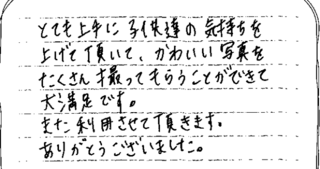 とても上手に子供達の気持ちを
上げて頂いて、かわいい写真を
たくさん撮ってもらうことができて
大満足です。
また利用させて頂きます。
ありがとうございました。